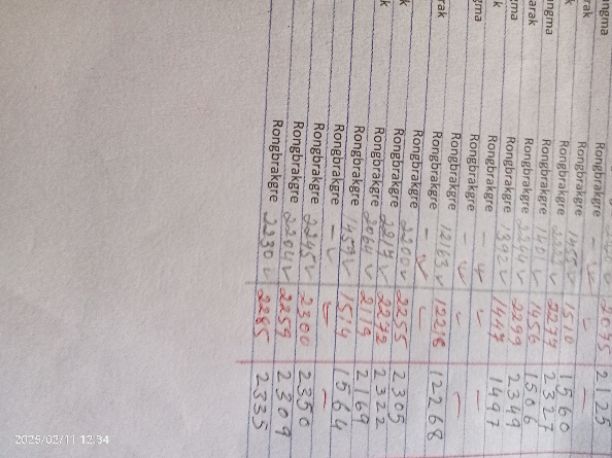 ngma Rongbrakgre 2125
arak Rongbrakgre - ✓ –
k Rongbrakgre 1455 ✓ 1510 1560
ngma Rongbrakgre 2327
arak Rongbrakgre 1401 ✓ 1456 1506
gma Rongbrakgre 2244 ✓ 2299 2349
k Rongbrakgre 1392 ✓ 1447 1497
gma Rongbrakgre - ✓ –
arak Rongbrakgre
rak Rongbrakgre 12163 ✓ 12218 12268
Rongbrakgre - ✓
k Rongbrakgre 2200 ✓ 2255 2305
Rongbrakgre 2217 ✓ 2272 2322
Rongbrakgre 2064 ✓ 2119 2169
Rongbrakgre 1459 ✓ 1514 1564
Rongbrakgre - ✓ –
Rongbrakgre 2245 ✓ 2300 2350
Rongbrakgre 2204 ✓ 2259 2309
Rongbrakgre 2230 ✓ 2285 2335
2025/02/11 12:34